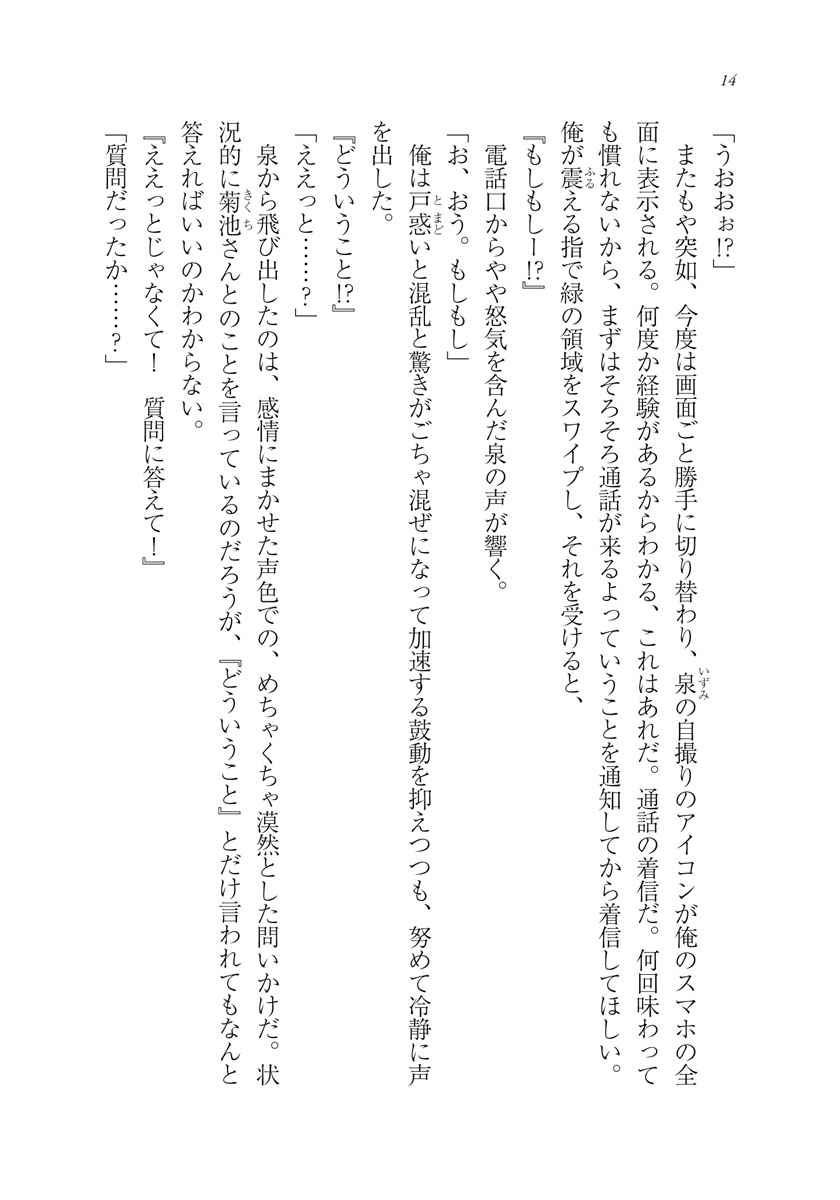 14
「うおおぉ!?」
　またもや突如、今度は画面ごと勝手に切り替わり、泉の自撮りのアイコンが俺のスマホの全
面に表示される。何度か経験があるからわかる、これはあれだ。通話の着信だ。何回味わって
も慣れないから、まずはそろそろ通話が来るよっていうことを通知してから着信してほしい。
俺が震える指で緑の領域をスワイプし、それを受けると、
『もしもしー!?』
　電話口からやや怒気を含んだ泉の声が響く。
「お、おう。もしもし」
　俺は戸惑いと混乱と驚きがごちゃ混ぜになって加速する鼓動を抑えつつも、努めて冷静に声
を出した。
『どういうこと!?』
「ええっと……?」
　泉から飛び出したのは、感情にまかせた声色での、めちゃくちゃ漠然とした問いかけだ。状
況的に菊池さんとのことを言っているのだろうが、『どういうこと』とだけ言われてもなんと
答えればいいのかわからない。
『ええっとじゃなくて！　質問に答えて！』
「質問だったか……?」